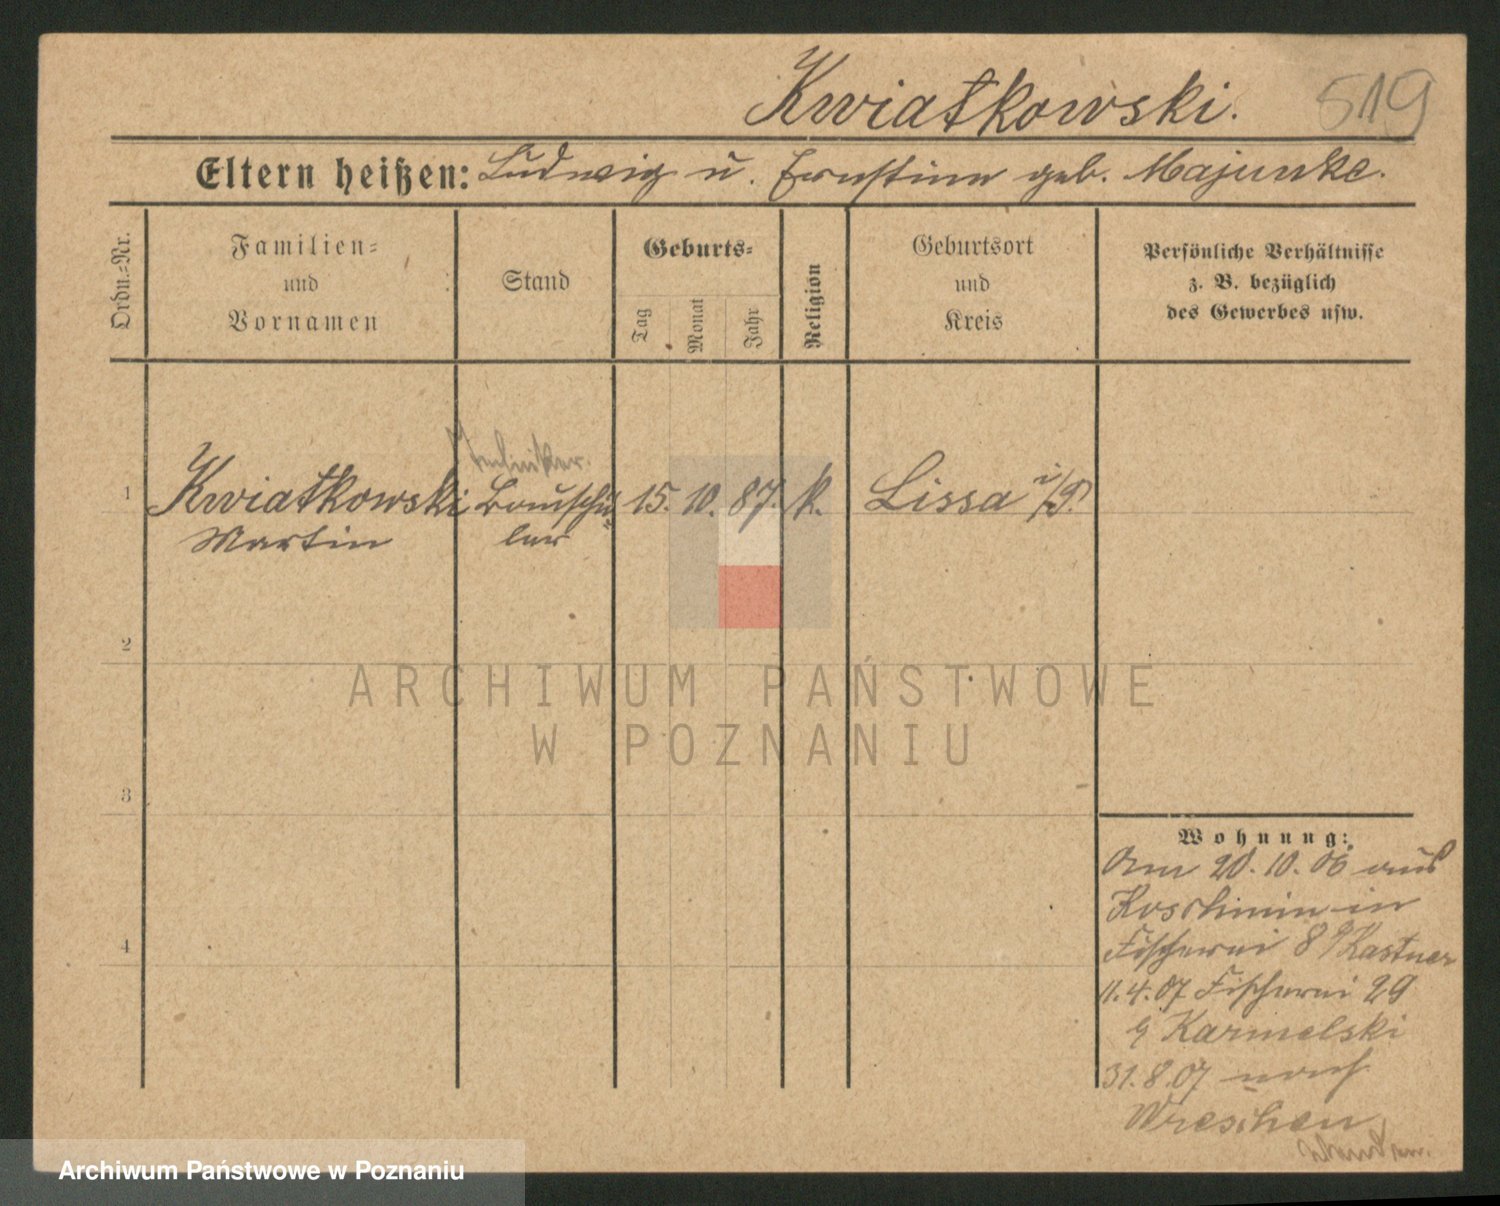 Kwiatkowski.
519
Eltern heißen: Ludwig u. Ernstine geb. Majunke.
Ordn.-Nr.
Familien-
und
Vornamen
Stand
Geburts-
Tag
Monat
Jahr
Religion
Geburtsort
und
Kreis
Persönliche Verhältnisse
z. B. bezüglich
des Gewerbes usw.
Techniker.
1 Kwiatkowski Bauschü 15. 10. 87. k. Lissa i/P.
Martin ler
2
3
4
Wohnung:
Am 20.10.06 aus
Koschmin in
Fischerei 8 b/Kastner
11.4.07 Fischerei 29
b/ Karmelski
31.8.07 nach
Wreschen
ARCHIWUM PAŃSTWOWE
W POZNANIU
Archiwum Państwowe w Poznaniu